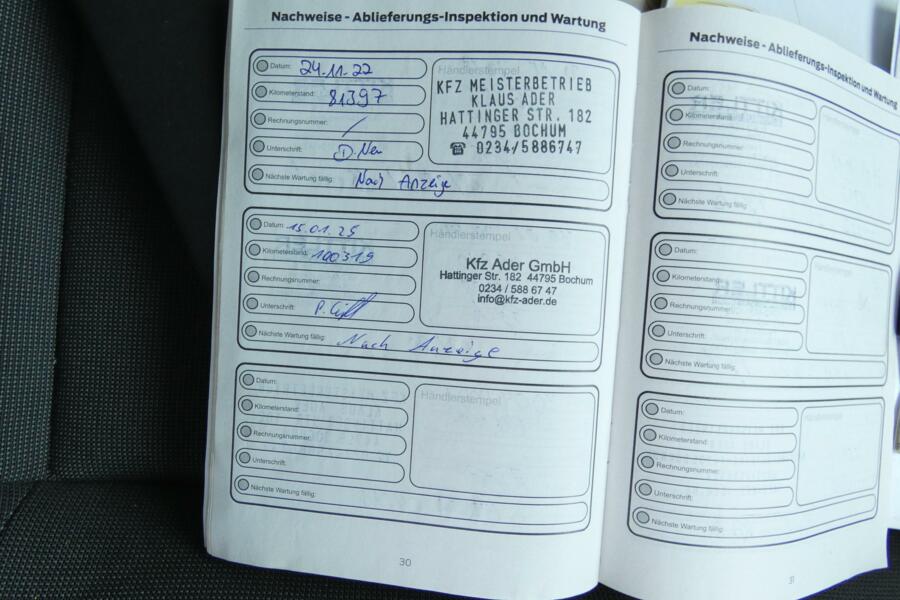 Nachweise - Ablieferungs-Inspektion und Wartung
Datum: 24.11.22
Kilometerstand: 81397
Rechnungsnummer: /
Unterschrift:
Nächste Wartung fällig: Nach Anzeige
Händlerstempel
KFZ MEISTERBETRIEB
KLAUS ADER
HATTINGER STR. 182
44795 BOCHUM
☎ 0234/5886747
Datum: 15.01.25
Kilometerstand: 100319
Rechnungsnummer:
Unterschrift:
Nächste Wartung fällig: Nach Anzeige
Händlerstempel
Kfz Ader GmbH
Hattinger Str. 182 44795 Bochum
0234 / 588 67 47
info@kfz-ader.de
Datum:
Kilometerstand:
Rechnungsnummer:
Unterschrift:
Nächste Wartung fällig:
Händlerstempel
30
Nachweise - Ablieferungs-Inspektion und Wartung
Datum:
Kilometerstand:
Rechnungsnummer:
Unterschrift:
Nächste Wartung fällig:
Datum:
Kilometerstand:
Rechnungsnummer:
Unterschrift:
Nächste Wartung fällig:
Datum:
Kilometerstand:
Rechnungsnummer:
Unterschrift:
Nächste Wartung fällig:
31